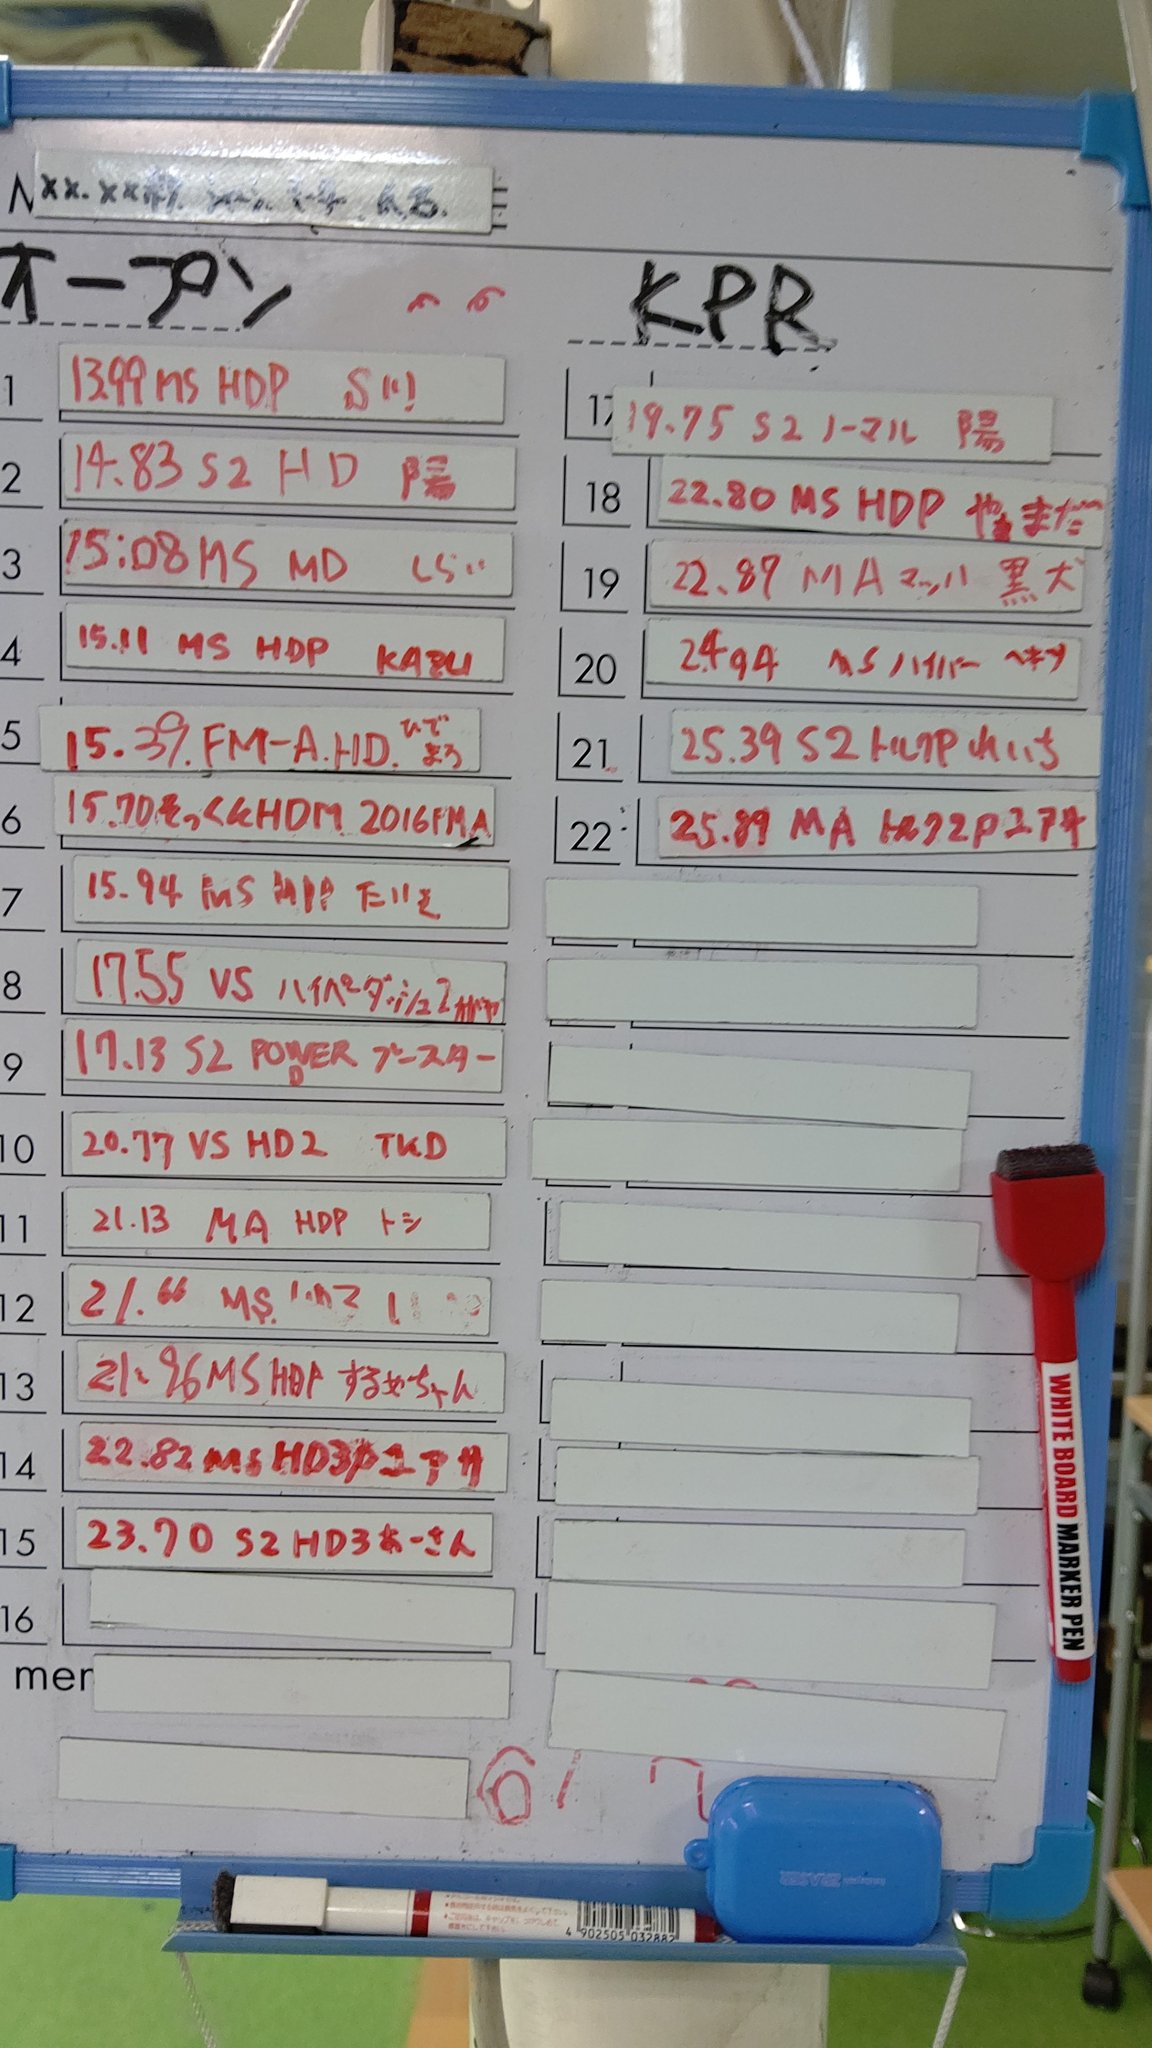 オープン
1 13.99 MS HDP
2 14.83 S2 HD 陽
3 15:08 MS MD しらい
4 15.11 MS HDP KAZU
5 15.39. FM-A.HD. ひでまろ
6 15.70 もっくん HDM 2016FMA
7 15.94 MS HDP たいき
8 17.55 VS ハイパーダッシュ2
9 17.13 S2 POWER D ブースター
10 20.77 VS HD2 TKD
11 21.13 MA HDP トシ
12 21.66 MS
13 21.96 MS HDP するめちゃん
14 22.82 MS HD3P ユアサ
15 23.70 S2 HD3 あーさん
16
mer
KPR
17 19.75 S2 ノーマル 陽
18 22.80 MS HDP やまだ
19 22.87 MA マッハ 黒犬
20 24.94 MS ハイパー
21 25.39 S2 トルクP れいち
22 25.89 MA トルク2P ユアサ
6/7
WHITE BOARD MARKER PEN
4 902505 032882